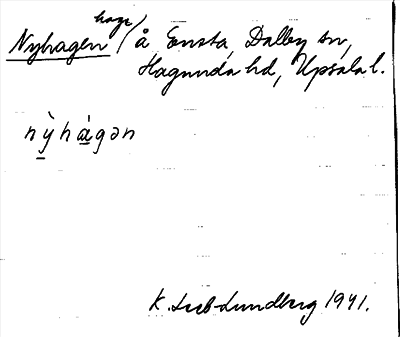 Nyhagen hage/ å Ensta, Dalby sn,
Hagunda hd, Upsala l.
nỳhágən
K. Leeb-Lundberg 1941.